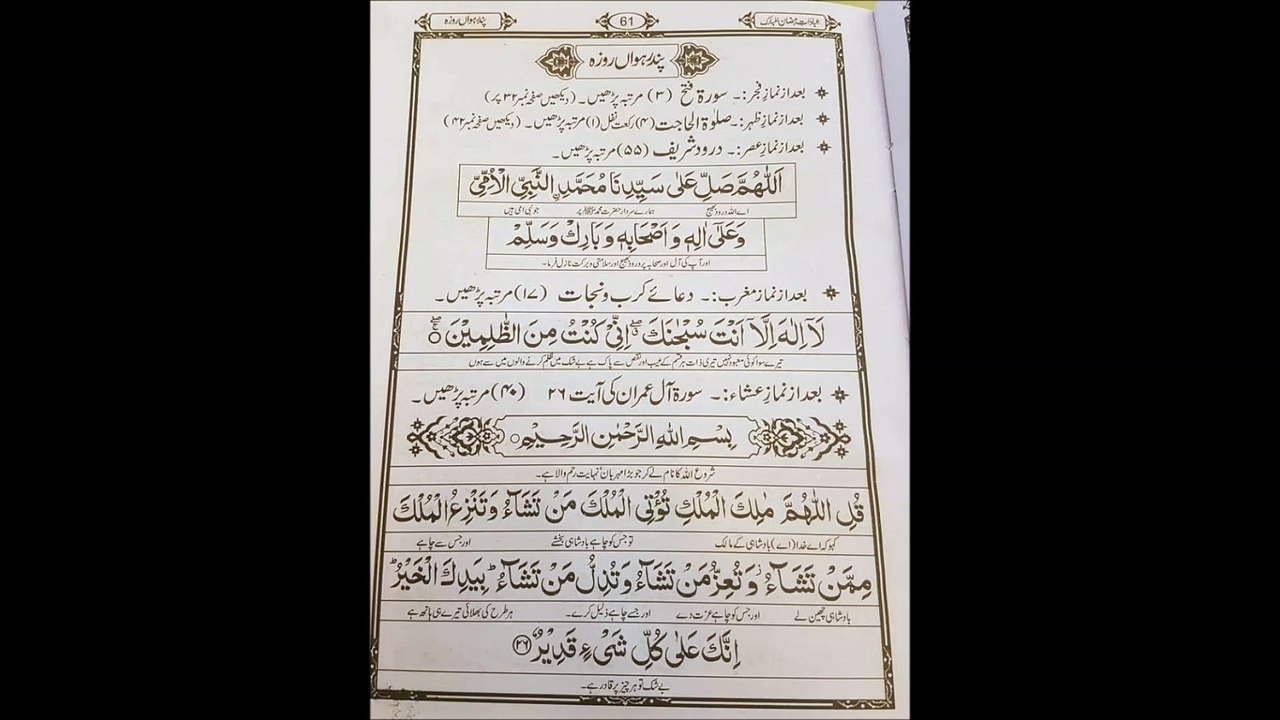 عبادات رمضان المبارک 61 پندرہواں روزہ
پندرہواں روزہ
بعد از نمازِ فجر:۔ سورۃ فتح (۳) مرتبہ پڑھیں۔ (دیکھیں صفحہ نمبر ۳۲ پر)
بعد از نمازِ ظہر:۔ صلوٰۃ الحاجت (۴) رکعت نفل (۱) مرتبہ پڑھیں۔ (دیکھیں صفحہ نمبر ۴۲)
بعد از نمازِ عصر:۔ درود شریف (۵۵) مرتبہ پڑھیں۔
اَللّٰهُمَّ صَلِّ عَلٰى سَيِّدِنَا مُحَمَّدِنِ النَّبِيِّ الْاُمِّيِّ
اے اللہ درود بھیج ہمارے سردار حضرت محمد ﷺ پر جو نبی امی ہیں
وَعَلٰۤى اٰلِهٖ وَاَصْحَابِهٖ وَبَارِكْ وَسَلِّمْ
اور آپ کی آل اور صحابہ پر درود بھیج اور سلامتی و برکت نازل فرما۔
بعد از نمازِ مغرب:۔ دعائے کرب و نجات (۱۷) مرتبہ پڑھیں۔
لَاۤ اِلٰهَ اِلَّاۤ اَنْتَ سُبْحٰنَكَ ۖ اِنِّيْ كُنْتُ مِنَ الظّٰلِمِيْنَ
تیرے سوا کوئی معبود نہیں تیری ذات ہر قسم کے عیب اور نقص سے پاک ہے بے شک میں ظلم کرنے والوں میں سے ہوں
بعد از نمازِ عشاء:۔ سورۃ آل عمران کی آیت ۲۶ (۴۰) مرتبہ پڑھیں۔
بِسْمِ اللهِ الرَّحْمٰنِ الرَّحِيْمِ
شروع اللہ کا نام لے کر جو بڑا مہربان نہایت رحم والا ہے۔
قُلِ اللّٰهُمَّ مٰلِكَ الْمُلْكِ تُؤْتِى الْمُلْكَ مَنْ تَشَآءُ وَتَنْزِعُ الْمُلْكَ
کہو کہ اے خدا (اے) بادشاہی کے مالک تو جس کو چاہے بادشاہی بخشے اور جس سے چاہے
مِمَّنْ تَشَآءُ ۫ وَتُعِزُّ مَنْ تَشَآءُ وَتُذِلُّ مَنْ تَشَآءُ ؕ بِيَدِكَ الْخَيْرُ ؕ
بادشاہی چھین لے اور جس کو چاہے عزت دے اور جسے چاہے ذلیل کرے۔ ہر طرح کی بھلائی تیرے ہی ہاتھ ہے
اِنَّكَ عَلٰى كُلِّ شَىْءٍ قَدِيْرٌ ﴿۲۶﴾
بے شک تو ہر چیز پر قادر ہے۔